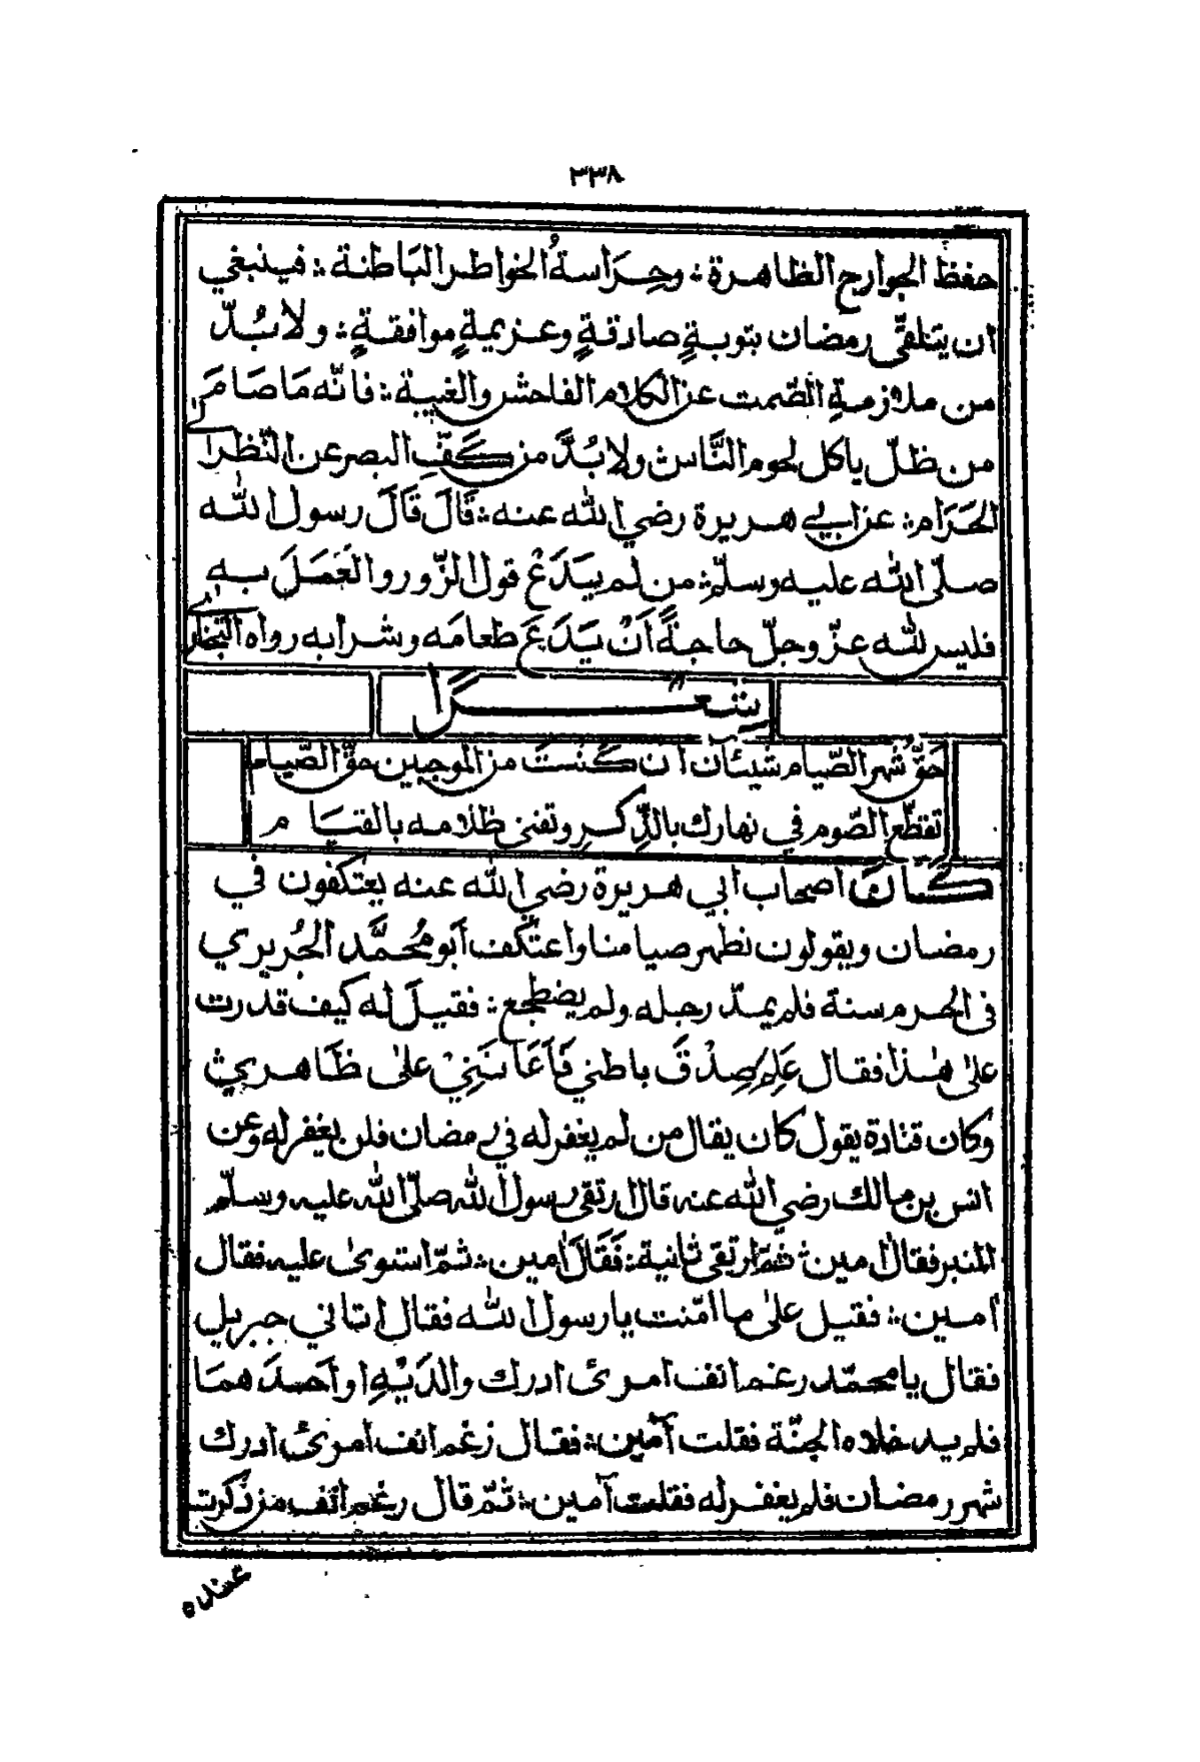 ٣٣٨
حفظ الجوارح الظاهرة: وحِرَاسةُ الخواطر الباطنة: فينبغي
ان يتلقّى رمضان بتوبةٍ صادقةٍ وعزيمةٍ موافقةٍ: ولا بُدّ
من ملازمةِ الصّمت عن الكلام الفاحش والغيبة: فانّه مَا صَامَ
من ظلّ ياكل لحوم النَّاس ولا بُدَّ من كَفِّ البصر عن النّظر الى
الحَرَام: عن ابي هريرة رضي الله عنه: قَالَ قَالَ رسول الله
صلّى الله عليه وسلّم: من لم يَدَعْ قول الزّور والعَمَلَ به
فليس لله عزّ وجلّ حاجةً اَنْ يَدَعَ طعامَه وشرابه رواه البخاري
شعر
حَقُّ شهر الصّيام شيئان ان كنتَ من الموجبين حقّ الصّيام
تقطّع الصّوم في نهارك بالذّكر وتفنى ظلامه بالقيام
كان اصحاب ابي هريرة رضي الله عنه يعتكفون في
رمضان ويقولون نطهر صيامنا واعتكف اَبو مُحمَّد الجُريري
فى الحرم سنة فلم يمدّ رجله ولم يضطجع: فقيلَ له كيف قدرت
على هٰذا فقال عَلِمَ صِدْقَ باطني فَاَعَانَنِيْ على ظَاهري
وكان قتادة يقول كان يقال من لم يغفر له في رمضان فلن يغفر له وعن
انس بن مالك رضي الله عنه قال ارتقى رسول الله صلّى الله عليه وسلّم
المنبر فقال امين: ثمّ ارتقى ثانية: فَقَالَ اٰمين: ثمّ استوىٰ عليه فقال
اٰمين: فقيل علىٰ ما امّنت يا رسول الله فقال اتاني جبريل
فقال يا محمّد رغم انف امرئ ادرك والدَيْهِ او اَحدَهمَا
فلم يدخلاه الجنّة فقلت آمين: فقال رَغم انف امرئ ادرك
شهر رمضان فلم يغفر له فقلت آمين: ثمّ قال رغم انف من ذُكرت
عنده